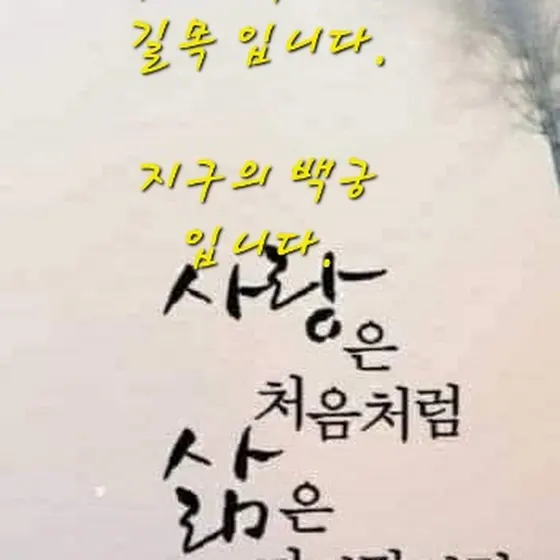 길목 입니다.
지구의 백궁
입니다.
사랑은
처음처럼
삶은